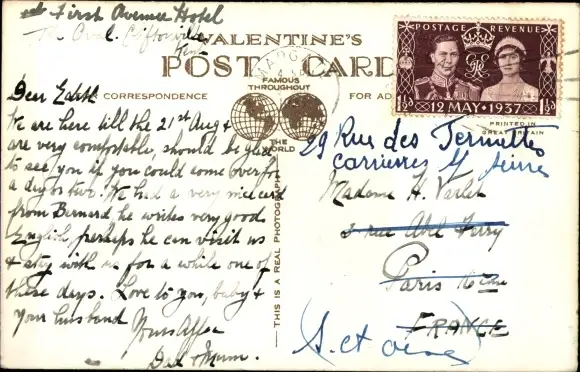 First Avenue Hotel
The Oval. Cliftonville
Kent
VALENTINE'S
POST CARD
FAMOUS
THROUGHOUT
THE
WORLD
CORRESPONDENCE
FOR AD
POSTAGE REVENUE
1½D 12 MAY · 1937 1½D
PRINTED IN
GREAT BRITAIN
THIS IS A REAL PHOTOGRAPH
Dear Edith
We are here till the 21st Aug &
are very comfortable, should be glad
to see you if you could come over for
a day or two. We had a very nice card
from Bernard, he writes very good
English, perhaps he can visit us
& stay with us for a while one of
these days. Love to you, baby &
your husband
Yours Affec
Dad & Mum.
29 Rue des Ternettes
Carrieres s/ Seine
Madame H. Varlet
2 rue Abel Ferry
Paris 16eme
FRANCE
(S. et Oise)